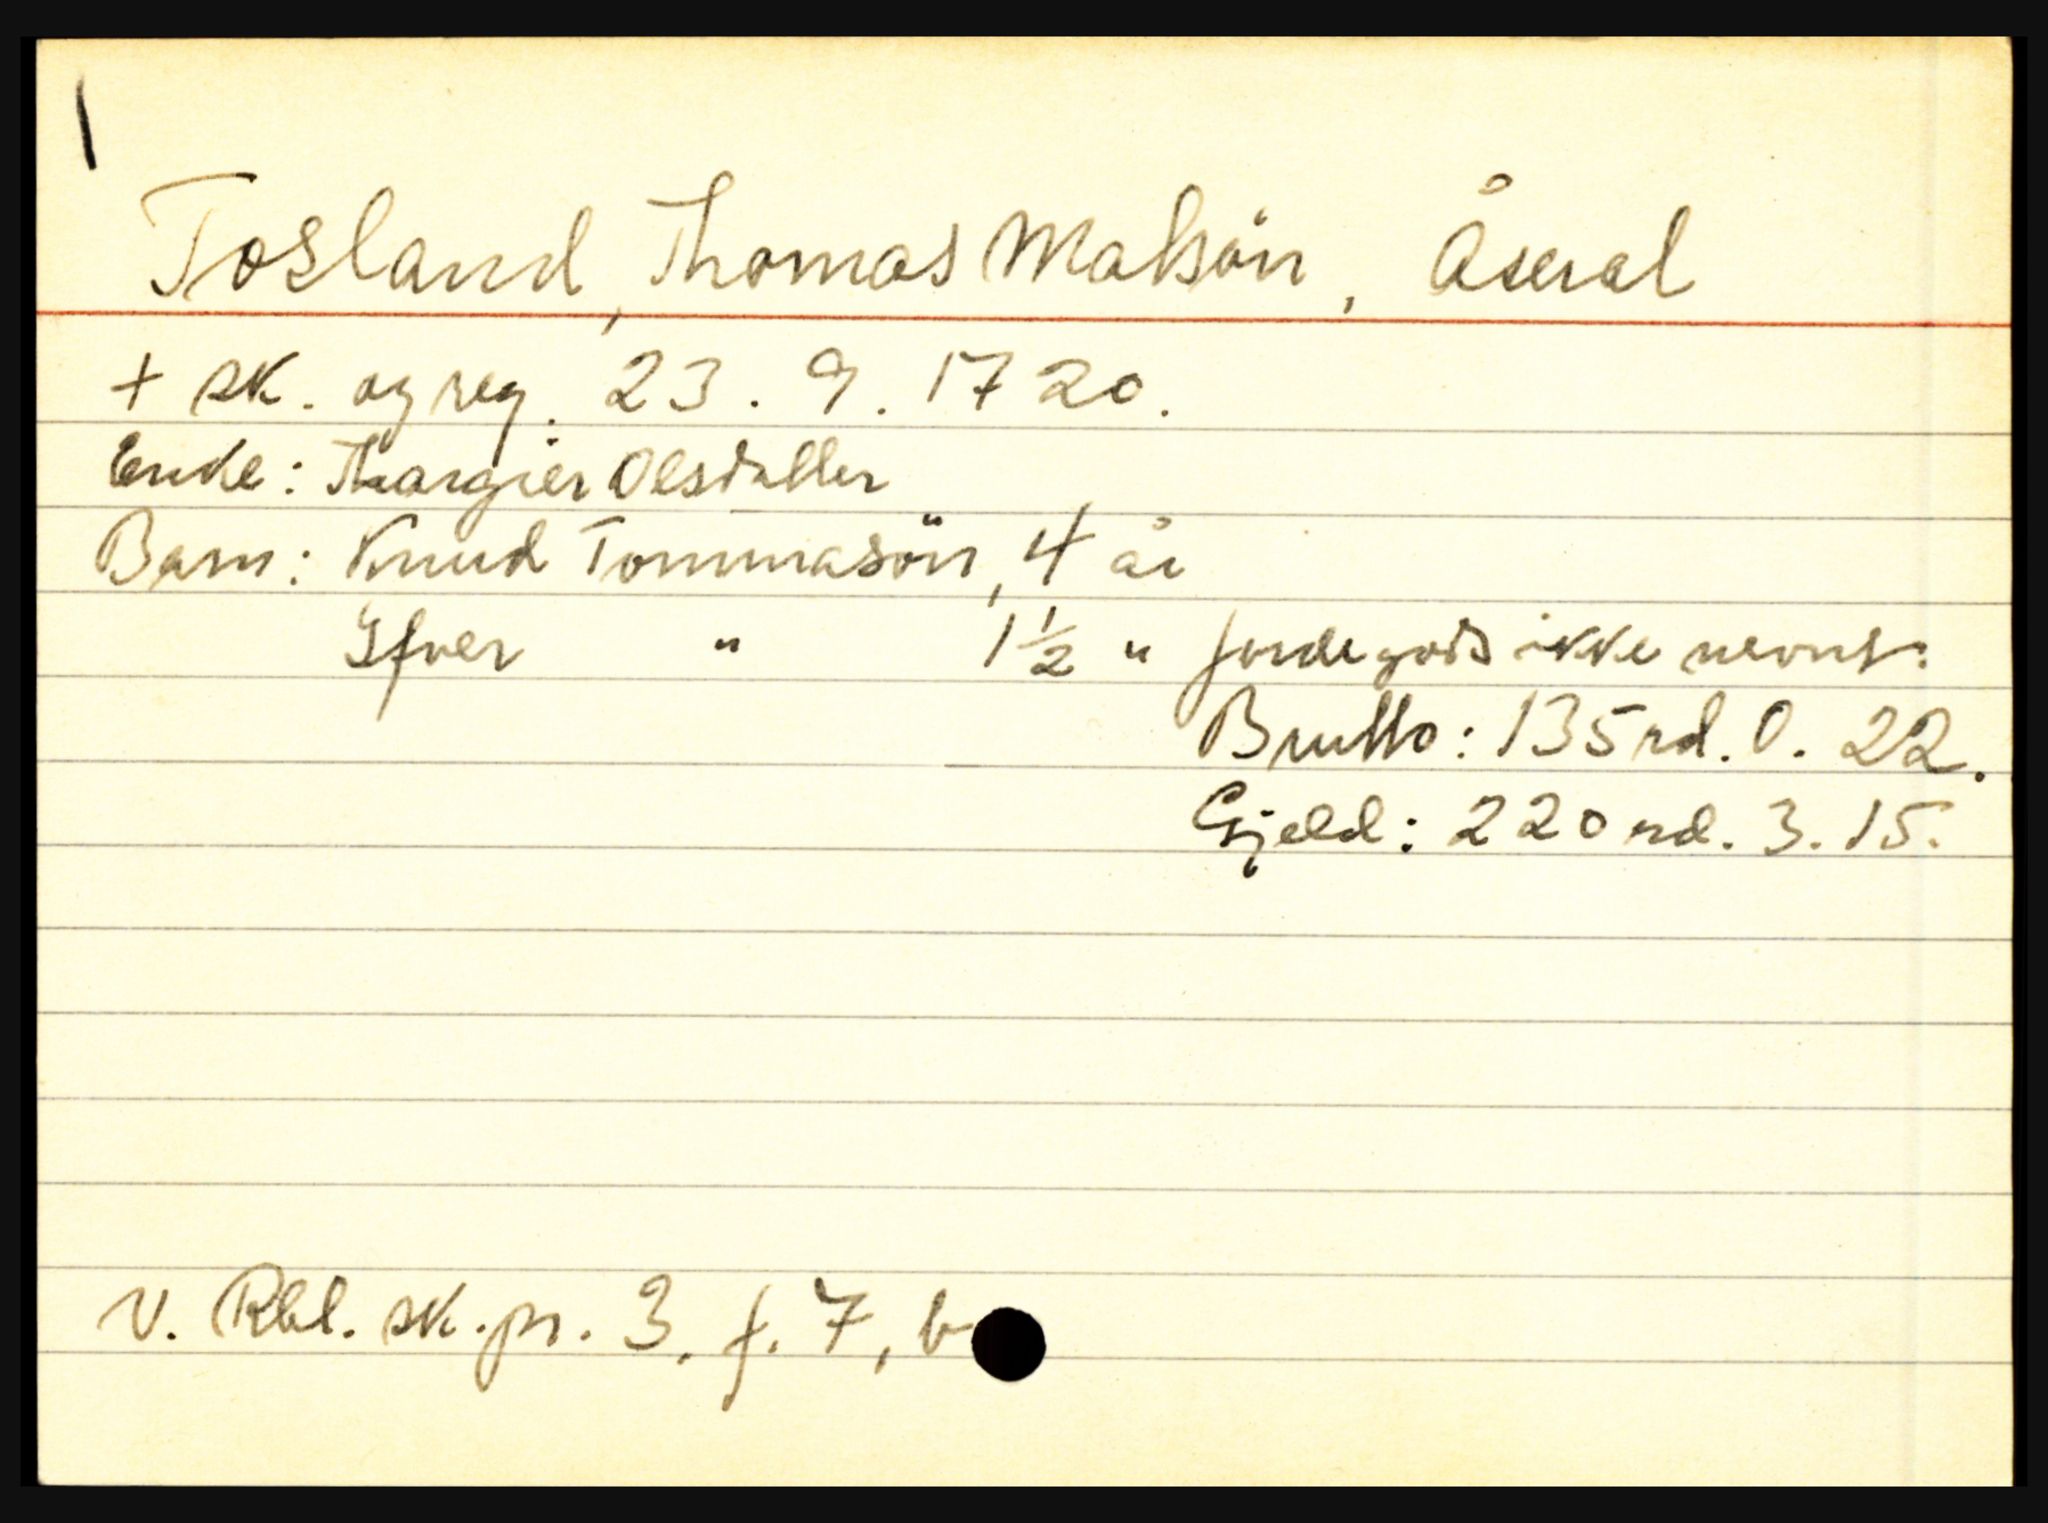 Tosland, Thomas Matsön, Åseral
+ sk. og reg. 23. 9. 1720.
Enke: Thargier Olsdatter
Barn: Knud Tommasön, 4 år
Ifver " 1 ½ " Jordegods ikke nevnt:
Brutto: 135 rd. 0. 22.
Gjeld: 220 rd. 3. 15.
V. Rbl. sk. pr. 3. f. 7, b